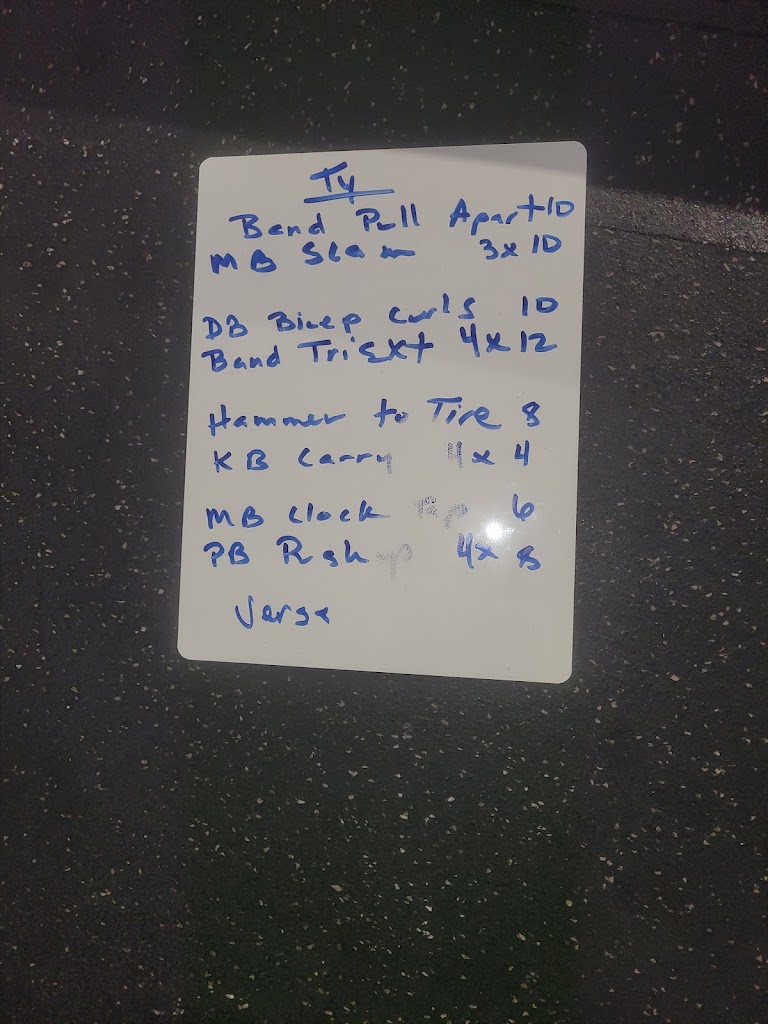 Ty
Band Pull Apart 10
MB Slam 3x 10
DB Bicep curls 10
Band Tri Ext 4x12
Hammer to Tire 8
KB Carry 4x 4
MB Clock 6
PB 4x 8